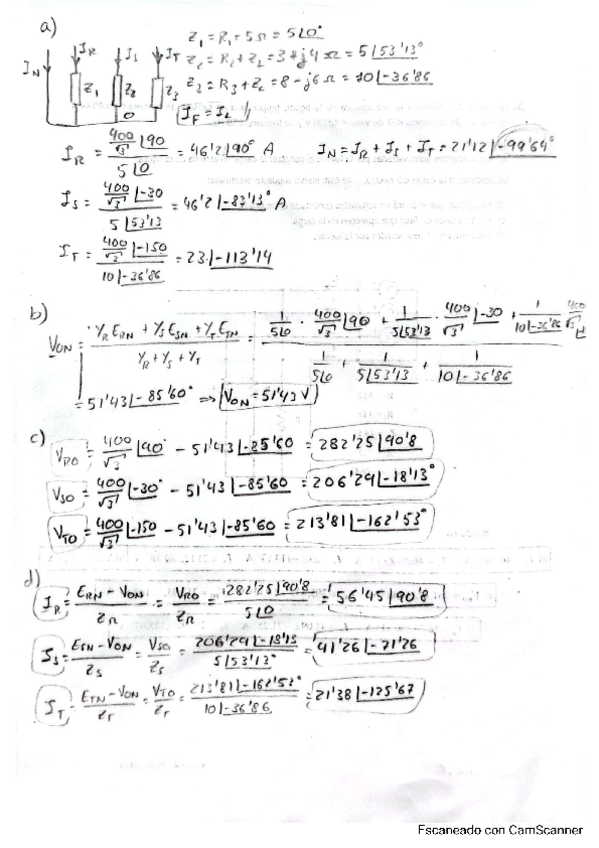 a)
I_N I_R I_S I_T Z_1 Z_2 Z_3 O
Z_1 = R_1 = 5Ω = 5∠0°
Z_2 = R_2 + Z_L = 3 + j4 Ω = 5∠53'13°
Z_3 = R_3 + Z_C = 8 - j6 Ω = 10∠-36'86
I_F = I_L
I_R = (400/√3 ∠90) / (5∠0) = 46'2∠90° A
I_N = I_R + I_S + I_T = 21'12∠-99'64°
I_S = (400/√3 ∠-30) / (5∠53'13) = 46'2∠-83'13° A
I_T = (400/√3 ∠-150) / (10∠-36'86) = 23∠-113'14
b)
V_ON = (Y_R E_RN + Y_S E_SN + Y_T E_TN) / (Y_R + Y_S + Y_T) = (1/5∠0 · 400/√3 ∠90 + 1/5∠53'13 · 400/√3 ∠-30 + 1/10∠-36'86 400/√3) / (1/5∠0 + 1/5∠53'13 + 1/10∠-36'86)
= 51'43∠-85'60° ⇒ V_ON = 51'43 V
c)
V_RO = 400/√3 ∠90° - 51'43∠-85'60 = 282'25∠90'8
V_SO = 400/√3 ∠-30° - 51'43∠-85'60 = 206'29∠-18'13°
V_TO = 400/√3 ∠-150 - 51'43∠-85'60 = 213'81∠-162'53°
d)
I_R = (E_RN - V_ON) / Z_R = V_RO / Z_R = 282'25∠90'8 / 5∠0 = 56'45∠90'8
I_S = (E_SN - V_ON) / Z_S = V_SO / Z_S = 206'29∠-18'13 / 5∠53'13° = 41'26∠-71'26
I_T = (E_TN - V_ON) / Z_T = V_TO / Z_T = 213'81∠-162'53° / 10∠-36'86 = 21'38∠-125'67
Escaneado con CamScanner